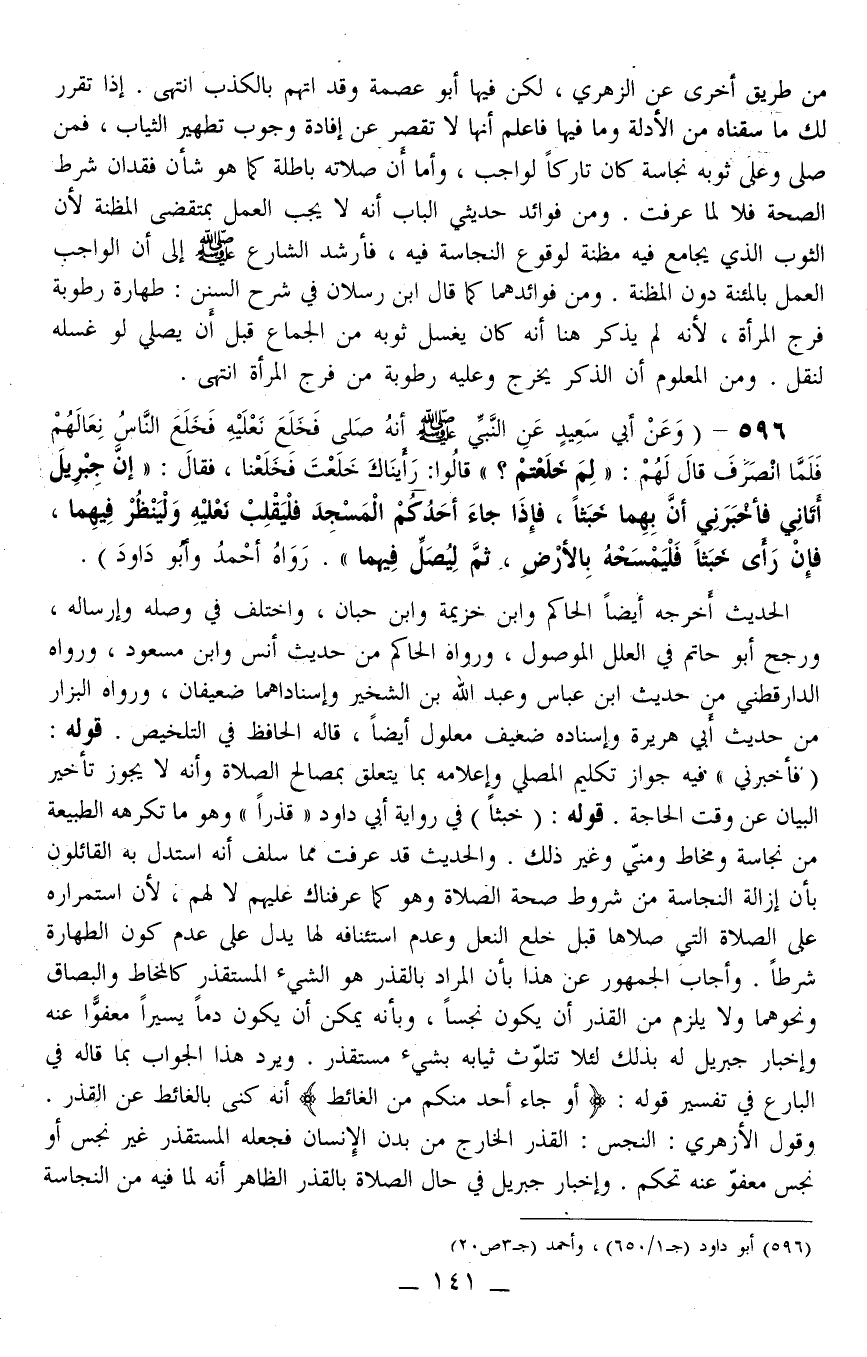 من طريق أخرى عن الزهري ، لكن فيها أبو عصمة وقد اتهم بالكذب انتهى . إذا تقرر
لك ما سقناه من الأدلة وما فيها فاعلم أنها لا تقصر عن إفادة وجوب تطهير الثياب ، فمن
صلى وعلى ثوبه نجاسة كان تاركاً لواجب ، وأما أن صلاته باطلة كما هو شأن فقدان شرط
الصحة فلا لما عرفت . ومن فوائد حديثي الباب أنه لا يجب العمل بمتقضى المظنة لأن
الثوب الذي يجامع فيه مظنة لوقوع النجاسة فيه ، فأرشد الشارع ﷺ إلى أن الواجب
العمل بالمئنة دون المظنة . ومن فوائدهما كما قال ابن رسلان في شرح السنن : طهارة رطوبة
فرج المرأة ، لأنه لم يذكر هنا أنه كان يغسل ثوبه من الجماع قبل أن يصلي لو غسله
لنقل . ومن المعلوم أن الذكر يخرج وعليه رطوبة من فرج المرأة انتهى .
٥٩٦ – ( وَعَنْ أبي سَعِيدٍ عَنِ النَّبيِّ ﷺ أنهُ صَلى فَخَلَعَ نَعْلَيْهِ فَخَلَعَ النَّاسُ نِعَالَهُمْ
فَلَمَّا انْصَرَفَ قالَ لَهُمْ : « لِمَ خَلَعْتمْ ؟ » قالُوا: رَأَيناكَ خَلَعْتَ فَخَلَعْنا ، فقالَ : « إنَّ جِبْرِيلَ
أتَانِي فأخْبَرَنِي أنَّ بِهِما خَبَثاً ، فإذَا جاءَ أحَدُكُمْ الْمَسْجِدَ فلْيَقْلِبْ نَعْلَيْهِ وَلْيَنْظُرْ فِيهِما ،
فإنْ رَأَى خَبَثاً فَلْيَمْسَحْهُ بِالأرْضِ ، ثمَّ لِيُصَلِّ فِيهِما » . رَوَاهُ أحْمدُ وأَبو دَاودَ ) .
الحديث أخرجه أيضاً الحاكم وابن خزيمة وابن حبان ، واختلف في وصله وإرساله ،
ورجح أبو حاتم في العلل الموصول ، ورواه الحاكم من حديث أنس وابن مسعود ، ورواه
الدارقطني من حديث ابن عباس وعبد الله بن الشخير وإسناداهما ضعيفان ، ورواه البزار
من حديث أبي هريرة وإسناده ضعيف معلول أيضاً ، قاله الحافظ في التلخيص . قوله :
( فأخبرني » فيه جواز تكليم المصلي وإعلامه بما يتعلق بمصالح الصلاة وأنه لا يجوز تأخير
البيان عن وقت الحاجة . قوله : ( خبثاً ) في رواية أبي داود « قذراً » وهو ما تكرهه الطبيعة
من نجاسة ومخاط ومنيّ وغير ذلك . والحديث قد عرفت مما سلف أنه استدل به القائلون
بأن إزالة النجاسة من شروط صحة الصلاة وهو كما عرفناك عليهم لا لهم ، لأن استمراره
على الصلاة التي صلاها قبل خلع النعل وعدم استئنافه لها يدل على عدم كون الطهارة
شرطاً . وأجاب الجمهور عن هذا بأن المراد بالقذر هو الشيء المستقذر كالمخاط والبصاق
ونحوهما ولا يلزم من القذر أن يكون نجساً ، وبأنه يمكن أن يكون دماً يسيراً معفوًّا عنه
وإخبار جبريل له بذلك لئلا تتلوّث ثيابه بشيء مستقذر . ويرد هذا الجواب بما قاله في
البارع في تفسير قوله : ﴿ أو جاء أحد منكم من الغائط ﴾ أنه كنى بالغائط عن القذر .
وقول الأزهري : النجس : القذر الخارج من بدن الإنسان فجعله المستقذر غير نجس أو
نجس معفوّ عنه تحكم . وإخبار جبريل في حال الصلاة بالقذر الظاهر أنه لما فيه من النجاسة
(٥٩٦) أبو داود (جـ١/ ٦٥٠) ، وأحمد (جـ٣ص٢٠)
– ١٤١ –